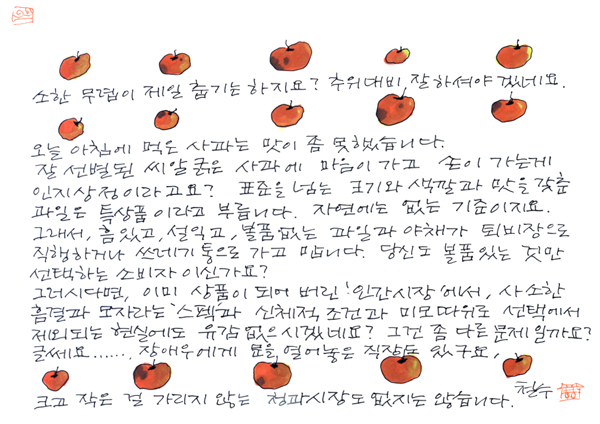 소한 무렵이 제일 춥기는 하지요? 추위대비 잘 하셔야 겠네요.
오늘 아침에 먹은 사과는 맛이 좀 못했습니다.
잘 선별된 씨알 굵은 사과에 마음이 가고 손이 가는게
인지상정이라고요? 표준을 넘는 크기와 색깔과 맛을 갖춘
과일은 특상품이라고 부릅니다. 자연에는 없는 기준이지요.
그래서, 흠있고, 설익고, 볼품없는 과일과 야채가 퇴비장으로
직행하거나 쓰레기통으로 가고 맙니다. 당신도 볼품있는 것만
선택하는 소비자이신가요?
그러시다면, 이미 상품이 되어 버린 '인간시장'에서, 사소한
흠결과 모자라는 '스펙'과 신체적 조건과 미모따위로 선택에서
제외되는 현실에도 유감 없으시겠네요? 그건 좀 다른 문제일까요?
글쎄요...... 장애우에게 문을 열어놓은 직장도 있구요,
크고 작은 걸 가리지 않는 청과시장도 없지는 않습니다. 철수